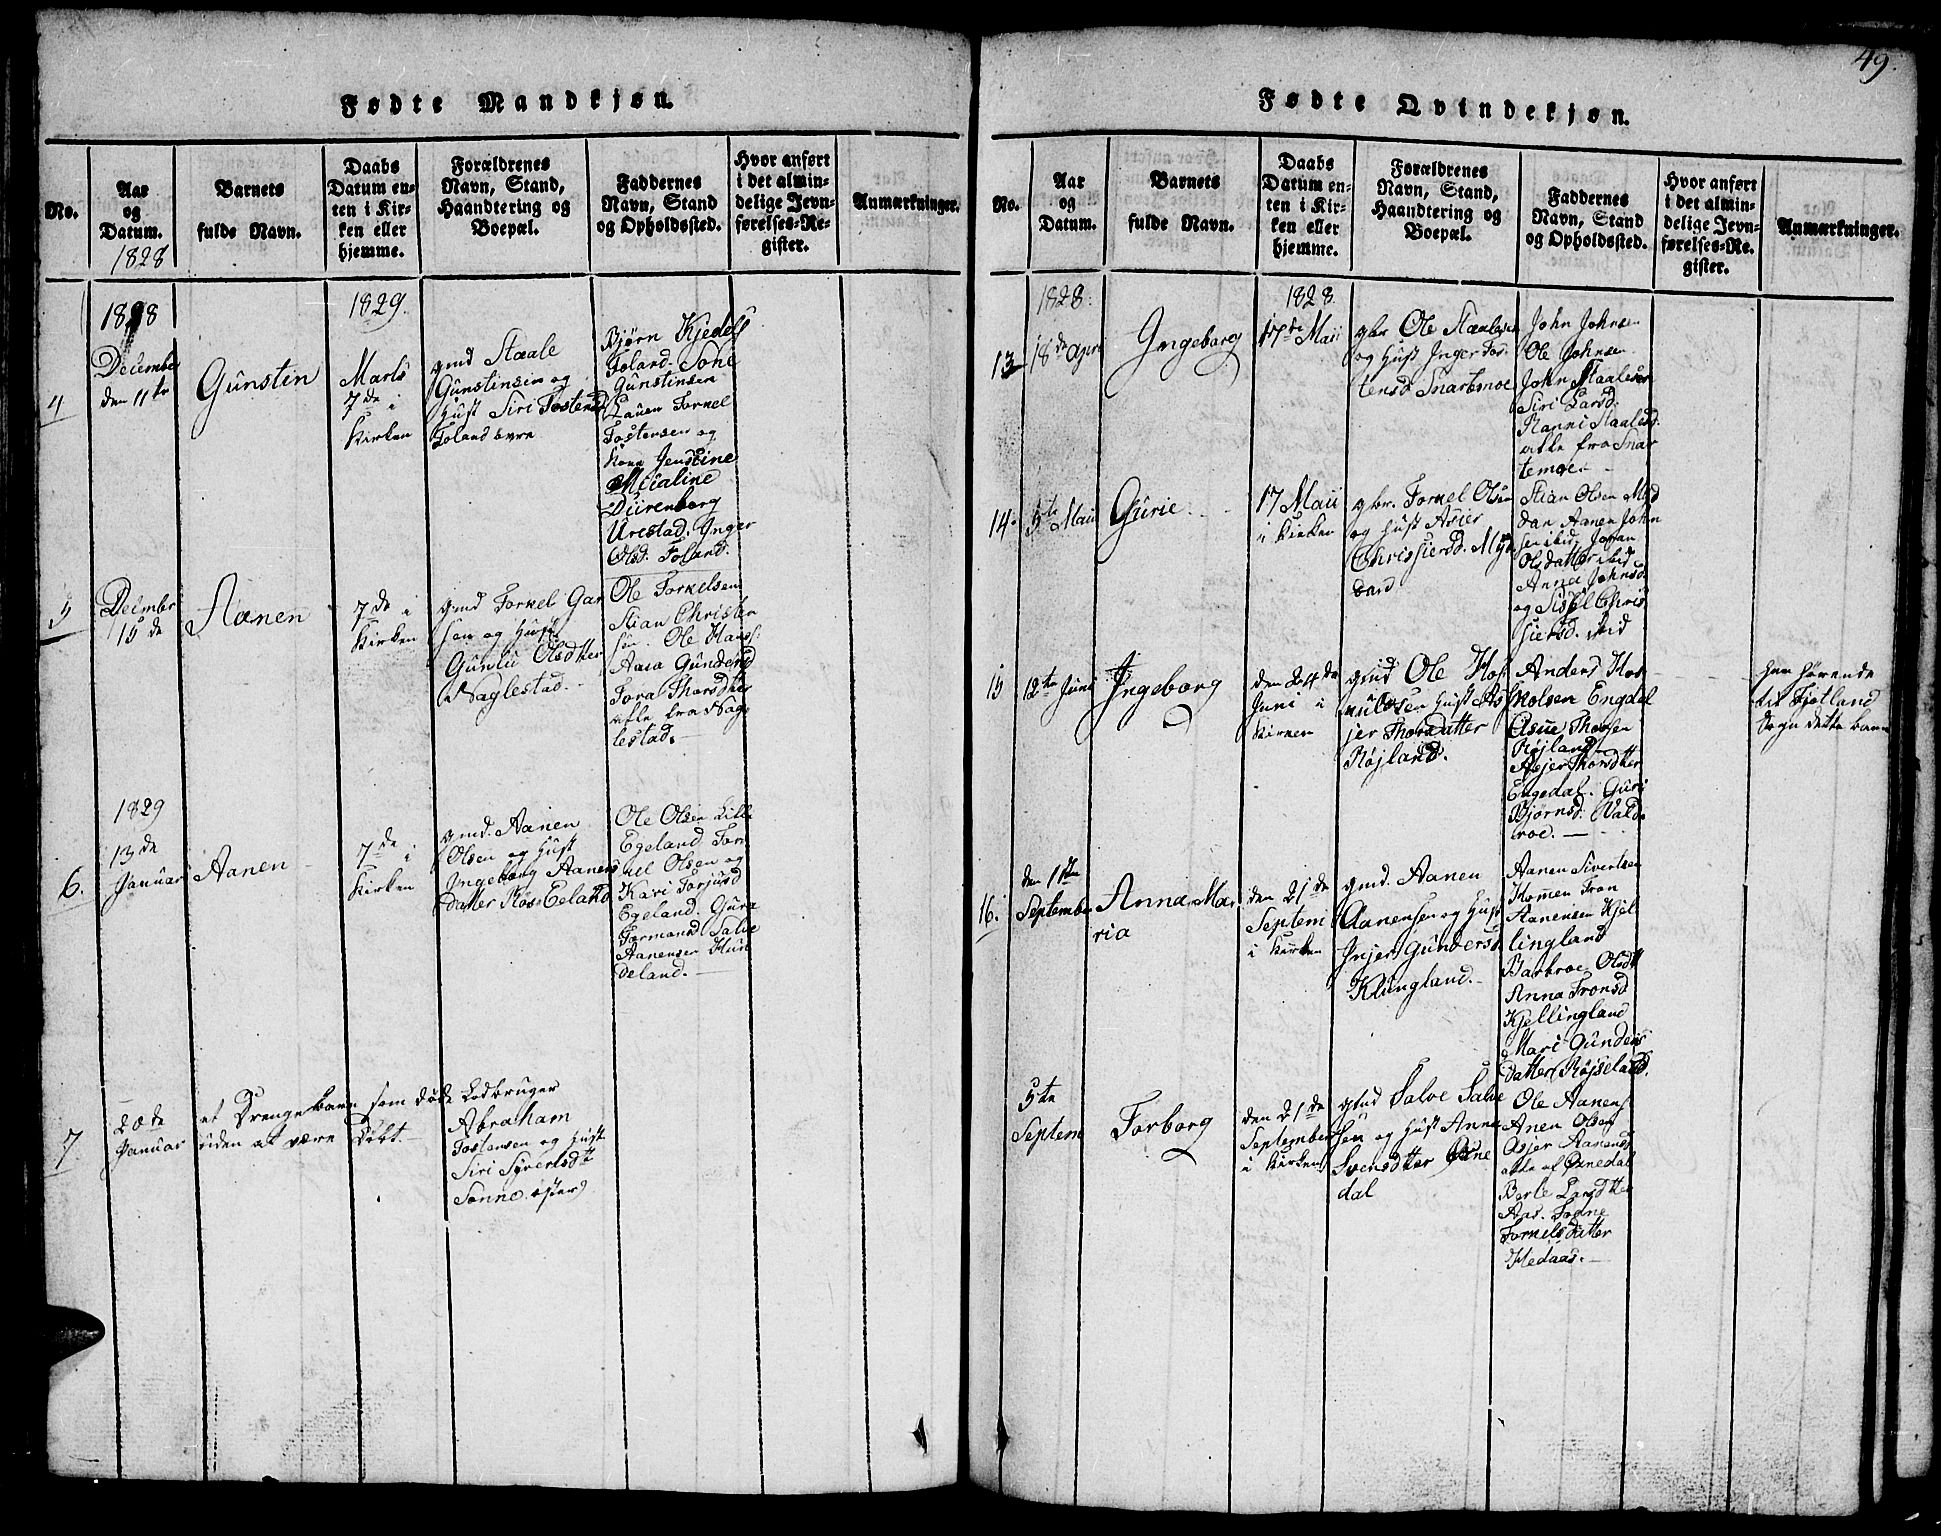 49.
Fødte Mandkjøn.
No.
Aar
og
Datum.
1828
Barnets
fulde Navn.
Daabs
Datum en-
ten i Kir-
ken eller
hjemme.
Forældrenes
Navn, Stand,
Haandtering og
Boepæl.
Faddernes
Navn, Stand
og Opholdssted.
Hvor anført
i det almin-
delige Jevn-
førelses-Re-
gister.
Anmærkninger.
4
1828
December
den 11te
Gunstin
1829.
Marts
7de i
Kirken
gmd Staale
Gunstinsen og
Hust Siri Tostensd
Foland
Bjørn Kjedels
Foland. Tone
Gunstinsen
Torkel
Tostensen og
Kone Jenstine
Micaline
Direnborg
Urestad. Inger
Olsd. Foland.
5
Decimbr
15de
Aanen
7de i
Kirken
gmd Torkel Gar
sen og Hust
Gunlu Olsdtter
Naglestad.
Ole Torkelsen
Stian Christen
sen. Ole Hans.
Aasa Gunders
Tora Thorsdtter
alle fra Nag
lestad.
6.
1829
13de
Januar
Aanen
7de i
Kirken
gmd. Aanen
Olsen og Hust
Ingeborg Aanens
datter Røs Eeland
Ole Olsen Lille
Egeland Tor
kel Olsen og
Kari Torjusd
Egeland. Gura
Tormand Salve
Aanensen Hun
deland.
7
20de
Januar
et Drengebarn som døde
uden at være Døbt.
Lodbruger
Abraham
Tostensen og Hust
Siri Syvertsdtt
Sønne
Fødte Qvindekjøn.
No.
Aar
og
Datum.
Barnets
fulde Navn.
Daabs
Datum en-
ten i Kir-
ken eller
hjemme.
Forældrenes
Navn, Stand,
Haandtering og
Boepæl.
Faddernes
Navn, Stand
og Opholdssted.
Hvor anført
i det almin-
delige Jevn-
førelses-Re-
gister.
Anmærkninger.
13
1828.
18de Apri
Ingeborg
1828.
17de Maii
gbr Ole Staalesen
og Hust Inger Tos-
tensd Snartemoe
John Johnsen
Ole Johnsen
John Staalesen
Siri Larsd.
Ranni Staalesd.
alle fra Snar
temoe.
14.
5te Maii
Gurie
17 Maii
i Kirken
gbr. Torkel Olsen
og Hust Asier
Chrissiersd. Myd
Stian Olsen Myd
dan Aanen John
sen ibid. Johan
Olsdatter ibid
Anna Johnsd.
og Sissel Chris
siersd. ibid
15
12te Juni
Ingeborg
den 24de
Juni i
Kirken
gmd Ole Hos
kulsen Hust As
jer Thorsdatter
Røjland.
Anders Hos
kolsen Engdal
Asue Thorsen
Røjland
Asjer Thorsdtter
Engedal. Guri
Bjørnsd. Vald-
roe.
Hen hørende
til Fjotland
Sogn dette barn
16.
den 1ste
September
Anna Ma-
ria
den 21de
Septem
i Kirken
gmd. Aanen
Aanensen og Hust
Injer Gundersd
Klungland.
Aanen Sivertsen
Hommen Tron
Aanensen Kjel
lingland
Barbroe Olsdtt
Anna Tronsd
Kjellingland
Mari Gunders
datter Røjseland.
5te
Septem
Torborg
den 21de
September
i Kirken
gmd Salve Salve
sen og Hust Anne
Svensdtter Øne
dal
Ole Aanens
Anen Olsen
Asjer Aanens
alle af Ønedal
Berte Larsdtter
Aas. Togne
Torkelsdatter
Hedaas.